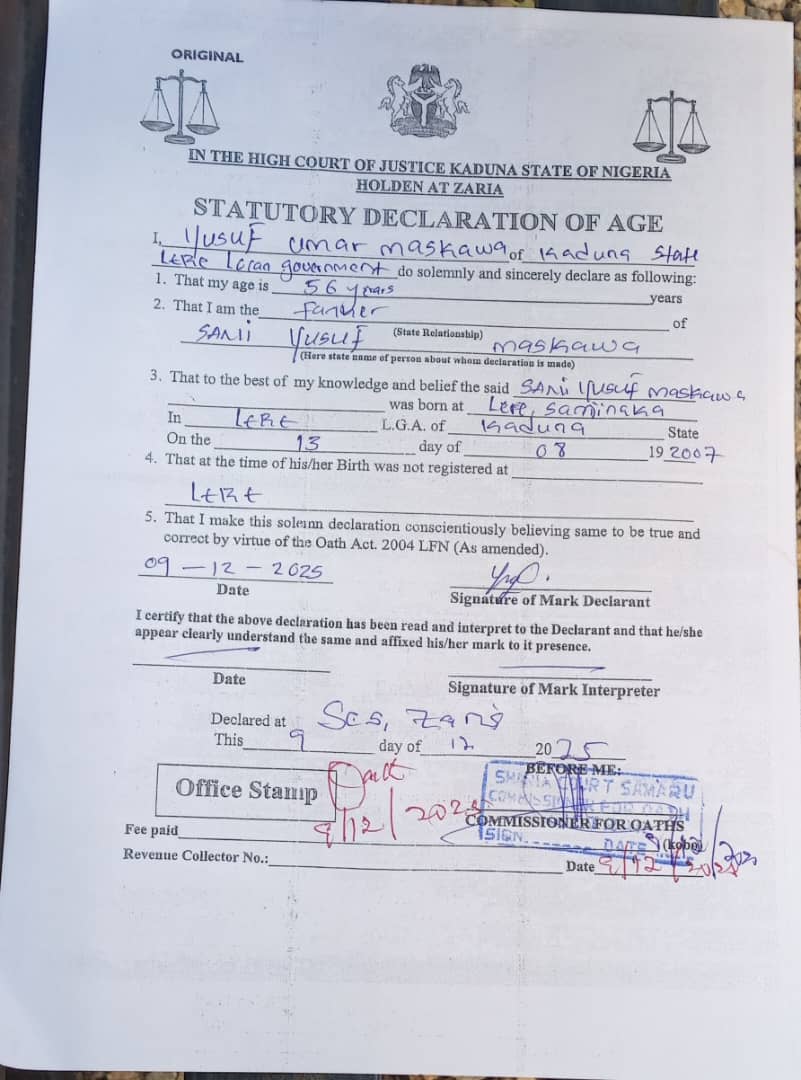 ORIGINAL
IN THE HIGH COURT OF JUSTICE KADUNA STATE OF NIGERIA
HOLDEN AT ZARIA
STATUTORY DECLARATION OF AGE
I, Yusuf umar maskawa of Kaduna State
LERE Local government do solemnly and sincerely declare as following:
1. That my age is 56 years years
2. That I am the father of
SANI Yusuf (State Relationship) maskawa
(Here state name of person about whom declaration is made)
3. That to the best of my knowledge and belief the said SANI Yusuf maskawa
was born at Lere, saminaka
In LERE L.G.A. of Kaduna State
On the 13 day of 08 19 2007
4. That at the time of his/her Birth was not registered at
LERE
5. That I make this solemn declaration conscientiously believing same to be true and
correct by virtue of the Oath Act. 2004 LFN (As amended).
09-12-2025
Date Signature of Mark Declarant
I certify that the above declaration has been read and interpret to the Declarant and that he/she
appear clearly understand the same and affixed his/her mark to it presence.
Date Signature of Mark Interpreter
Declared at Zaria
This 9 day of 12 2025
BEFORE ME:
SHARIA COURT SAMARU
COMMISSIONER FOR OATH
Office Stamp
9/12/2025
COMMISSIONER FOR OATHS
SIGN DATE
Fee paid (kobo)
Revenue Collector No.: Date 9/12/2025